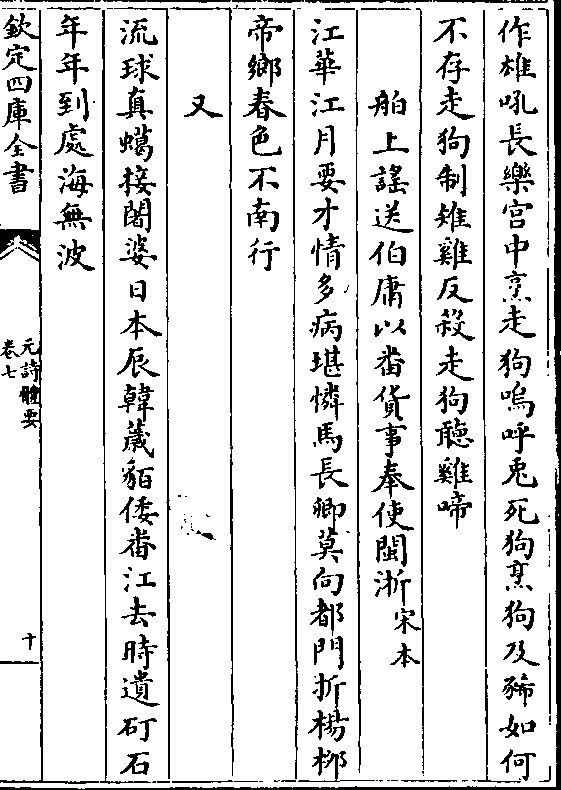 作雄吼長樂宫中烹走狗嗚呼兎死狗烹狗及豨如何
不存走狗制雉雞反殺走狗聽雞啼
舶上謡送伯庸以畨貨事奉使閩浙宋本
江華江月要才情多病堪憐馬長卿莫向都門折楊栁
帝鄉春色不南行
又
流球真蠟接闍婆日本辰韓薉貊倭畨江去時遺矴石
年年到處海無波
欽定四庫全書
元詩體要
卷七
十